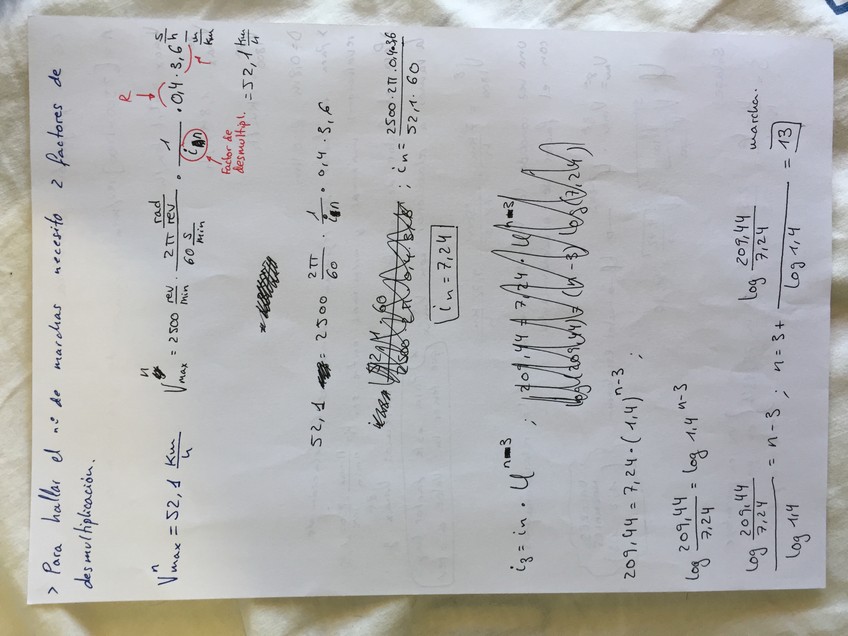 > Para hallar el nº de marchas necesito 2 factores de
desmultiplicación.
V^n_max = 52,1 Km/h
V^n_max = 2500 rev/min · (2π rad/rev)/(60 s/min) · 1/in · 0,4 · 3,6 (s/h)/(m/km) = 52,1 Km/h
R
Factor de
desmultipl.
52,1 = 2500 2π/60 · 1/in · 0,4 · 3,6
; in = (2500 · 2π · 0,4 · 3,6)/(52,1 · 60)
in = 7,24
i3 = in · U^(n-3) ;
209,44 = 7,24 · (1,4)^(n-3) ;
log 209,44/7,24 = log 1,4^(n-3)
(log 209,44/7,24)/(log 1,4) = n-3 ; n = 3 + (log 209,44/7,24)/(log 1,4) = 13 marcha.